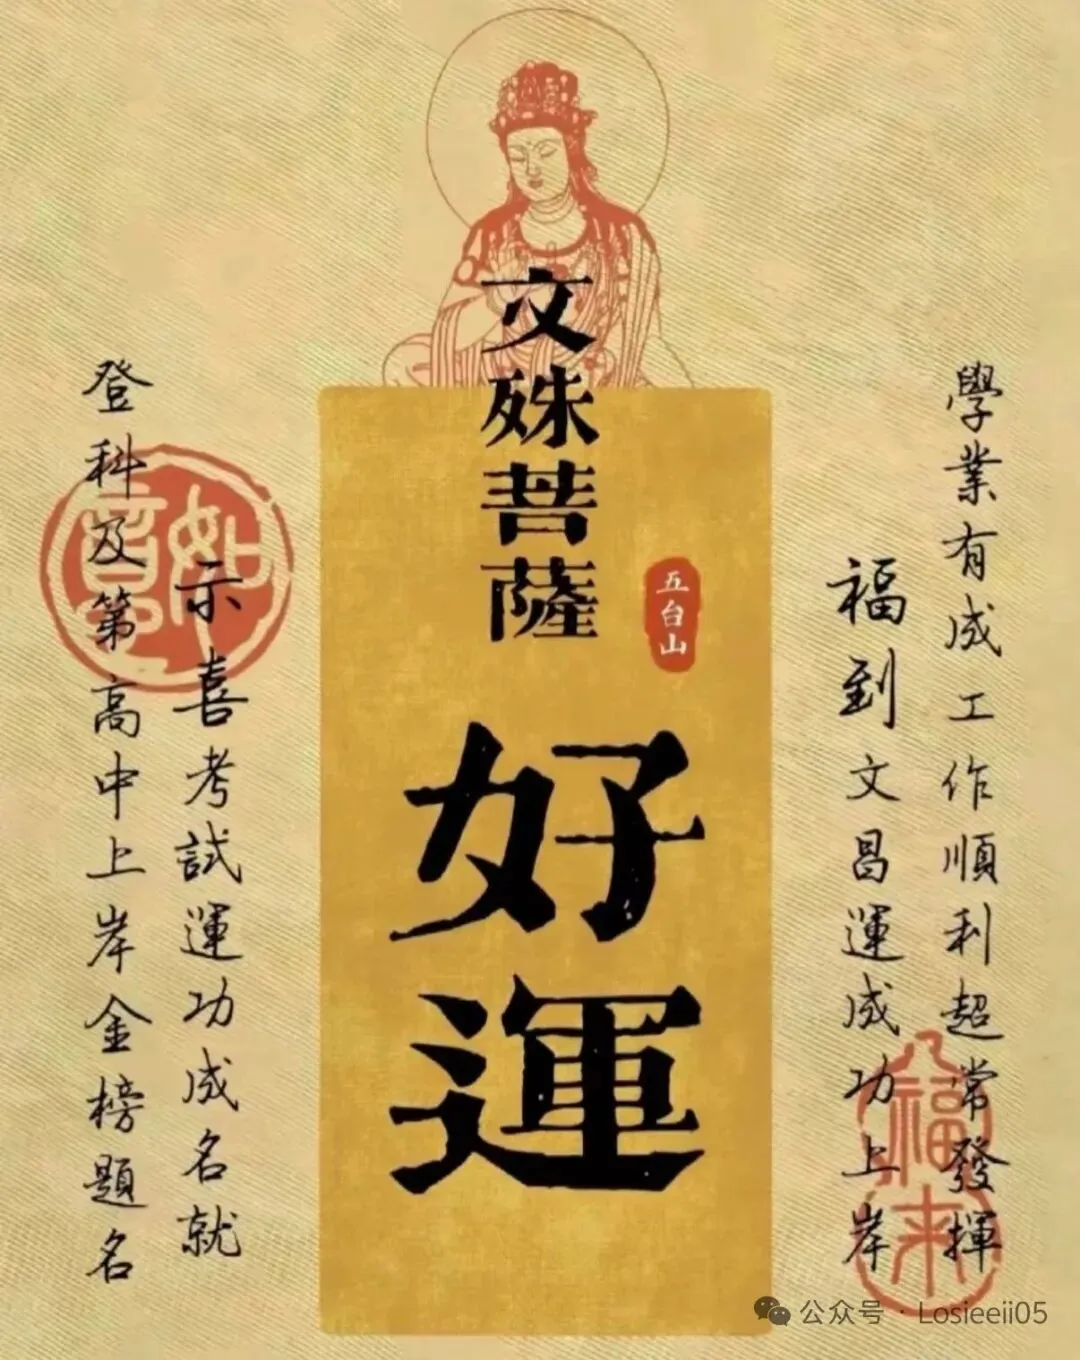 學業有成工作順利超常發揮
福到文昌運成功上岸
福来
文殊菩薩
五台山
好運
示喜考試運功成名就
登科及第高中上岸金榜題名
如意
公众号 · Losieeii05